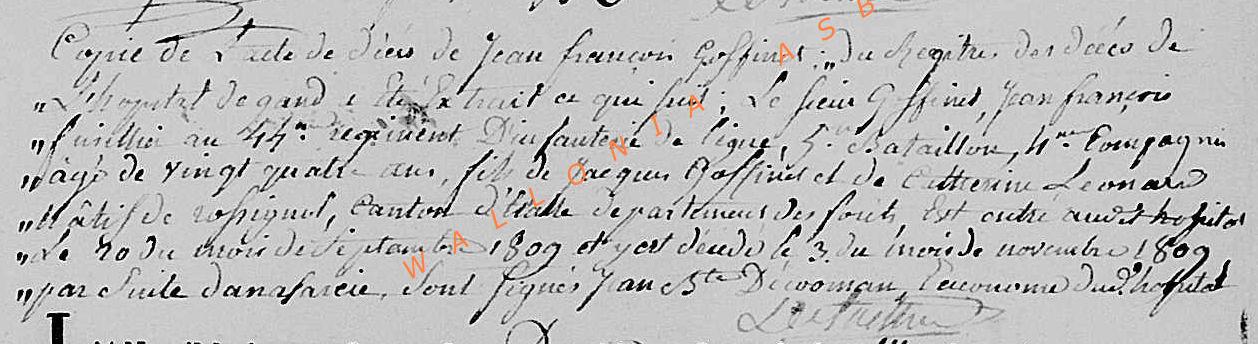 Copie de l'acte de décès de Jean françois Goffinet; „du Registre des décès de
„L'hopital de gand a été Extrait ce qui suit; Le sieur Goffinet, Jean françois
„fusillier au 44me regiment D'infanterie de ligne, 5me Bataillon, 4me Compagnie
„âgé de vingt quatre ans, fils de Jacques Goffinet et de Catherine Leonard
„Nâtif de rossignol, Canton d'Etalle departement des forêts, Est entré audit hopital
„Le 20 du mois de Septembre 1809 et y est décédé le 3 du mois de novembre 1809
„par Suite d'anasarcie, Sont signés Jean Bte Dewoman, l'économe dud. hopital
WALLONIA ASB